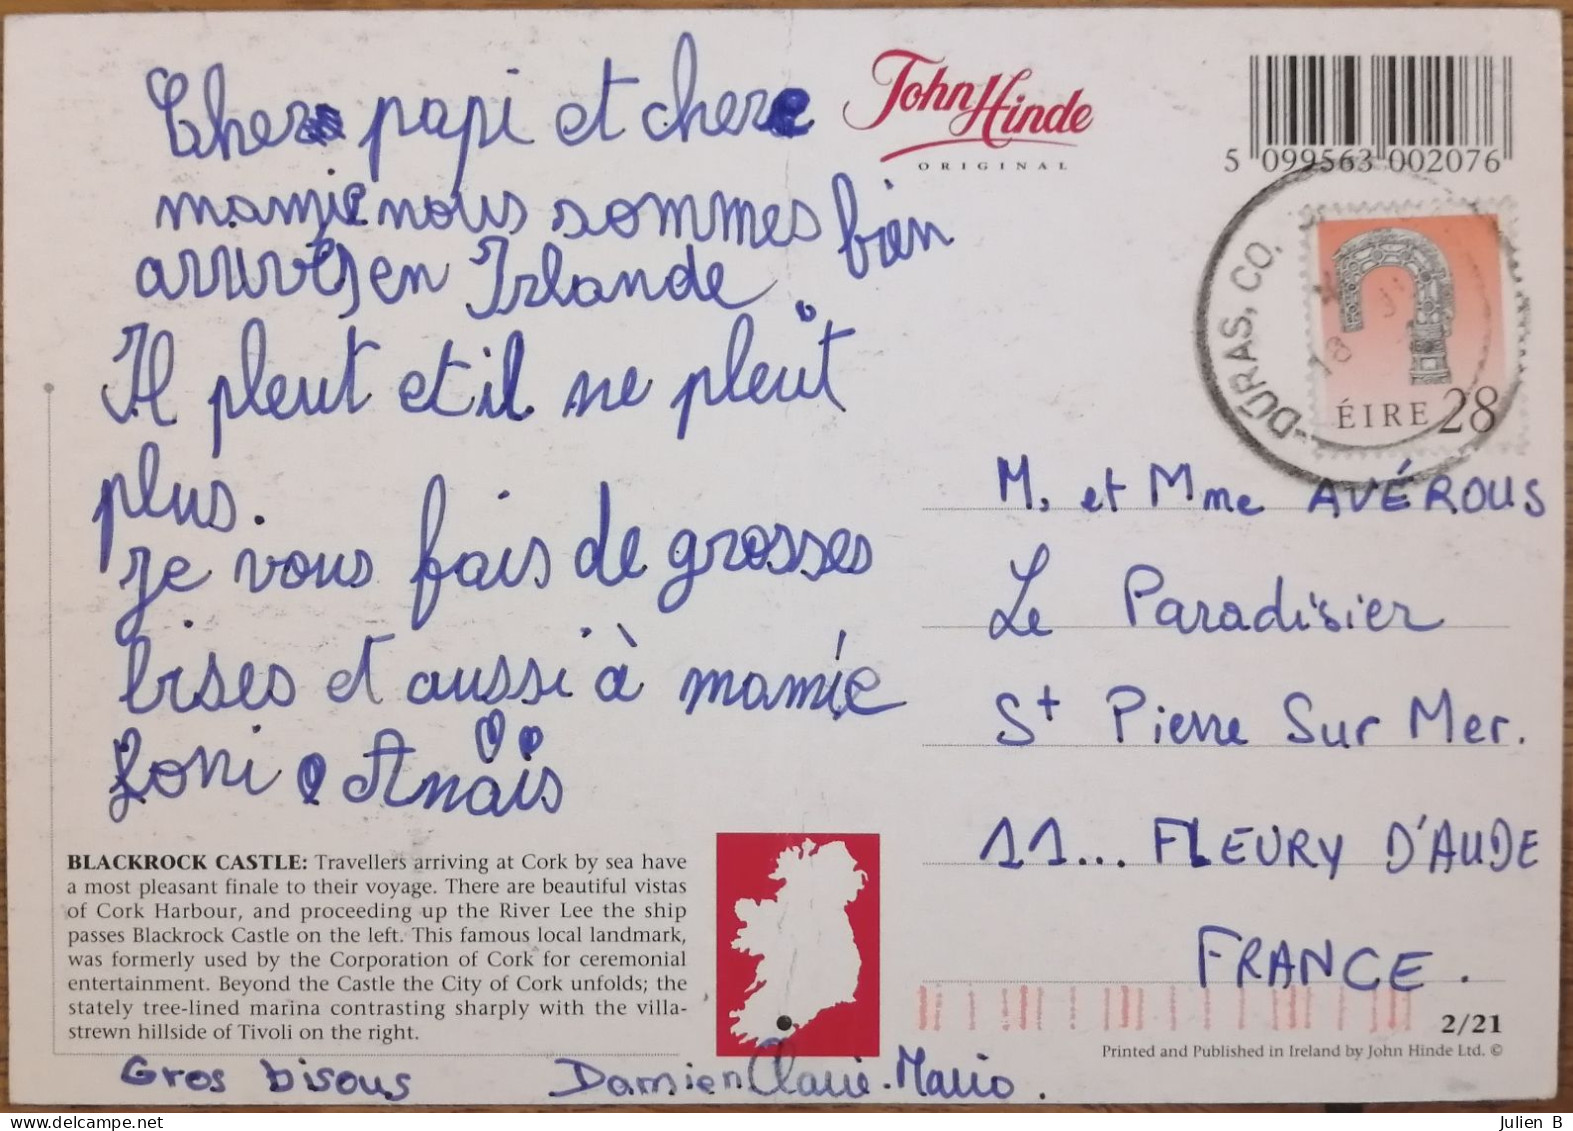 Cher papi et chere
mamie nous sommes bien
arrivés en Irlande.
Il pleut et il ne pleut
plus.
Je vous fais de grosses
bises et aussi à mamie
Loni Anaïs
John Hinde
ORIGINAL
5 099563 002076
DÚRAS, CO.
18
ÉIRE 28
M. et Mme AVÉROUS
Le Paradisier
St Pierre Sur Mer.
11... FLEURY D'AUDE
FRANCE.
BLACKROCK CASTLE: Travellers arriving at Cork by sea have
a most pleasant finale to their voyage. There are beautiful vistas
of Cork Harbour, and proceeding up the River Lee the ship
passes Blackrock Castle on the left. This famous local landmark,
was formerly used by the Corporation of Cork for ceremonial
entertainment. Beyond the Castle the City of Cork unfolds; the
stately tree-lined marina contrasting sharply with the villa-
strewn hillside of Tivoli on the right.
2/21
Printed and Published in Ireland by John Hinde Ltd. ©
Gros bisous Damien Claire-Marie.
Julien B